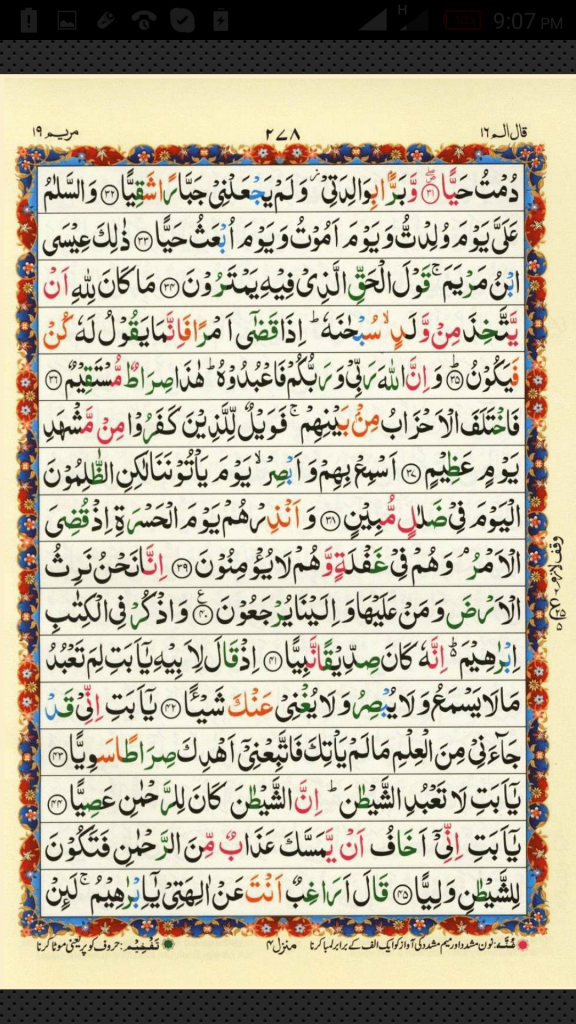 H 9:07 PM
قال الم ١٦ ٢٧٨ مريم ١٩
دُمْتُ حَيًّا ۝٣١ وَّبَرًّۢا بِوَالِدَتِيْ ؗ وَلَمْ يَجْعَلْنِيْ جَبَّارًا شَقِيًّا ۝٣٢ وَالسَّلٰمُ
عَلَيَّ يَوْمَ وُلِدْتُّ وَيَوْمَ اَمُوْتُ وَيَوْمَ اُبْعَثُ حَيًّا ۝٣٣ ذٰلِكَ عِيْسَى
ابْنُ مَرْيَمَ ۚ قَوْلَ الْحَقِّ الَّذِيْ فِيْهِ يَمْتَرُوْنَ ۝٣٤ مَا كَانَ لِلّٰهِ اَنْ
يَّتَّخِذَ مِنْ وَّلَدٍ ۙ سُبْحٰنَهٗ ؕ اِذَا قَضٰۤى اَمْرًا فَاِنَّمَا يَقُوْلُ لَهٗ كُنْ
فَيَكُوْنُ ؕ۝٣٥ وَاِنَّ اللّٰهَ رَبِّيْ وَرَبُّكُمْ فَاعْبُدُوْهُ ؕ هٰذَا صِرَاطٌ مُّسْتَقِيْمٌ ۝٣٦
فَاخْتَلَفَ الْاَحْزَابُ مِنْۢ بَيْنِهِمْ ۚ فَوَيْلٌ لِّلَّذِيْنَ كَفَرُوْا مِنْ مَّشْهَدِ
يَوْمٍ عَظِيْمٍ ۝٣٧ اَسْمِعْ بِهِمْ وَاَبْصِرْ ۙ يَوْمَ يَاْتُوْنَنَا لٰكِنِ الظّٰلِمُوْنَ
الْيَوْمَ فِيْ ضَلٰلٍ مُّبِيْنٍ ۝٣٨ وَاَنْذِرْهُمْ يَوْمَ الْحَسْرَةِ اِذْ قُضِيَ
الْاَمْرُ ۘ وَهُمْ فِيْ غَفْلَةٍ وَّهُمْ لَا يُؤْمِنُوْنَ ۝٣٩ اِنَّا نَحْنُ نَرِثُ
الْاَرْضَ وَمَنْ عَلَيْهَا وَاِلَيْنَا يُرْجَعُوْنَ ۝٤٠ وَاذْكُرْ فِي الْكِتٰبِ
اِبْرٰهِيْمَ ؕ اِنَّهٗ كَانَ صِدِّيْقًا نَّبِيًّا ۝٤١ اِذْ قَالَ لِاَبِيْهِ يٰۤاَبَتِ لِمَ تَعْبُدُ
مَا لَا يَسْمَعُ وَلَا يُبْصِرُ وَلَا يُغْنِيْ عَنْكَ شَيْـًٔا ۝٤٢ يٰۤاَبَتِ اِنِّيْ قَدْ
جَآءَنِيْ مِنَ الْعِلْمِ مَا لَمْ يَاْتِكَ فَاتَّبِعْنِيْۤ اَهْدِكَ صِرَاطًا سَوِيًّا ۝٤٣
يٰۤاَبَتِ لَا تَعْبُدِ الشَّيْطٰنَ ؕ اِنَّ الشَّيْطٰنَ كَانَ لِلرَّحْمٰنِ عَصِيًّا ۝٤٤
يٰۤاَبَتِ اِنِّيْۤ اَخَافُ اَنْ يَّمَسَّكَ عَذَابٌ مِّنَ الرَّحْمٰنِ فَتَكُوْنَ
لِلشَّيْطٰنِ وَلِيًّا ۝٤٥ قَالَ اَرَاغِبٌ اَنْتَ عَنْ اٰلِهَتِيْ يٰۤاِبْرٰهِيْمُ ۚ لَئِنْ
غُنّہ: نون مشدد اور میم مشدد کی آواز کو ایک الف کے برابر لمبا کرنا منزل ۴ تفخیم: حروف کو پُر یعنی موٹا کرنا